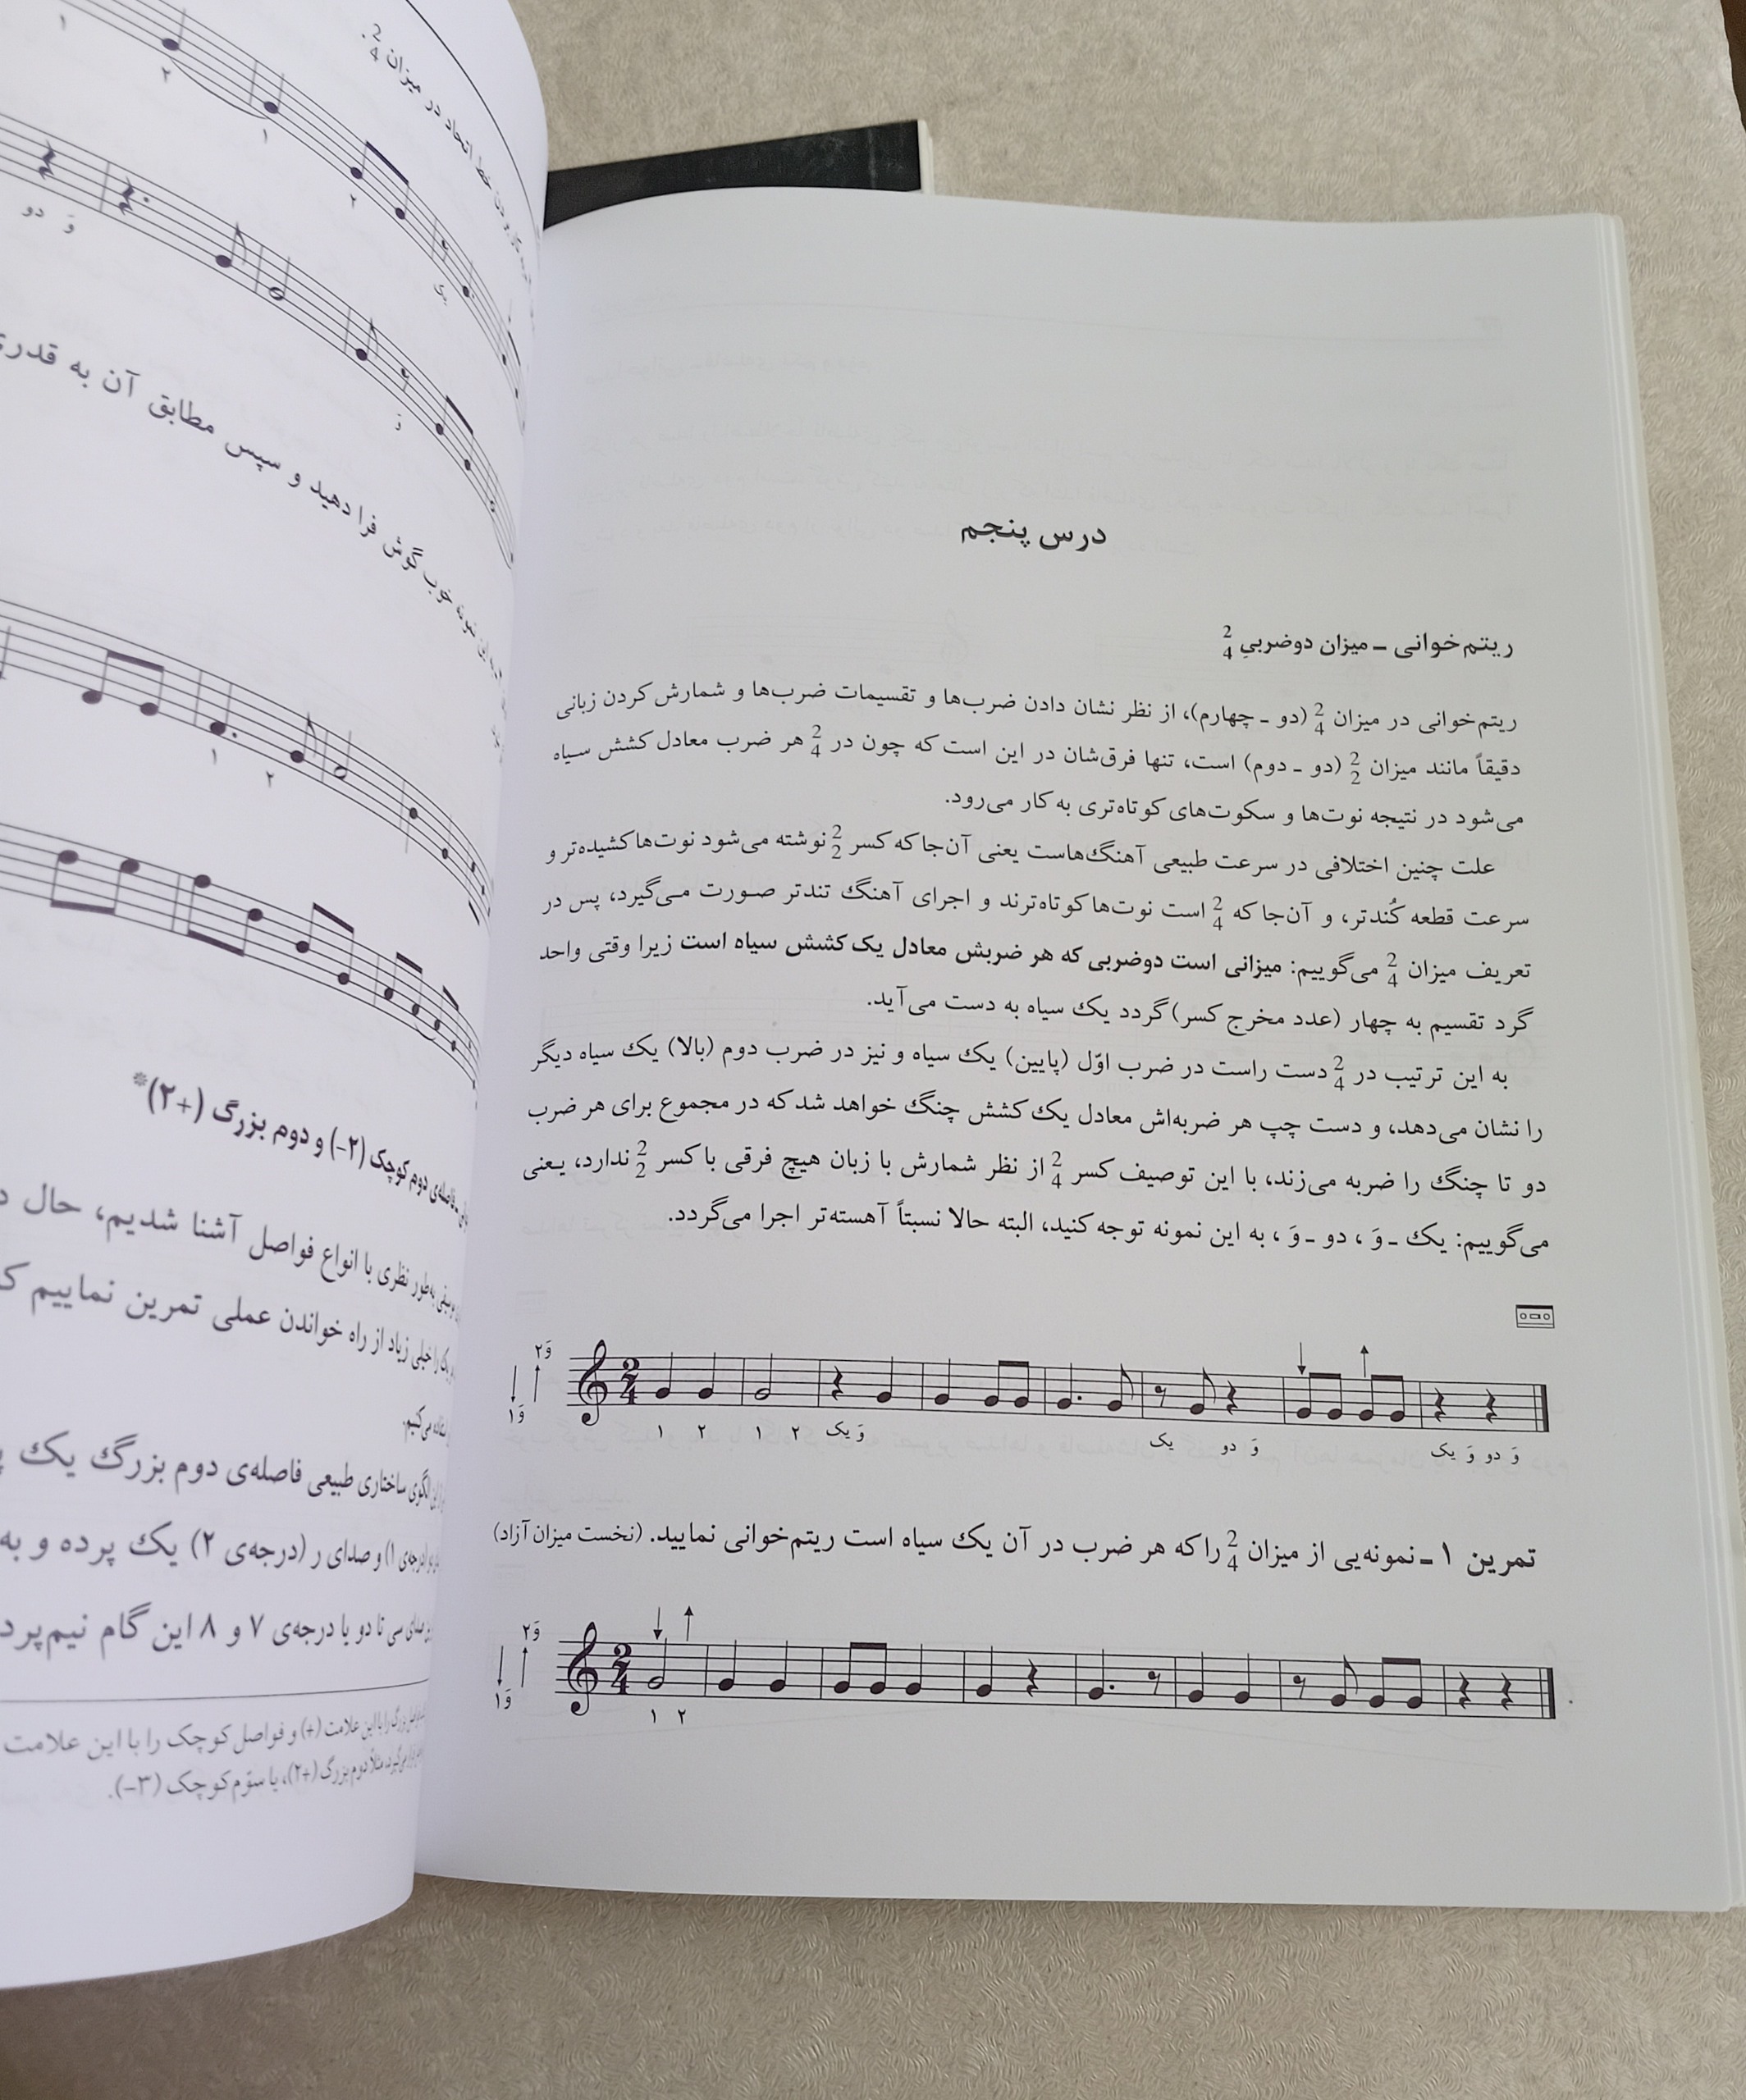 درس پنجم
ریتم‌خوانی ـ میزان دوضربیِ 2/4
ریتم‌خوانی در میزان 2/4 (دو ـ چهارم)، از نظر نشان دادن ضرب‌ها و تقسیمات ضرب‌ها و شمارش کردن زبانی
دقیقاً مانند میزان 2/2 (دو ـ دوم) است، تنها فرق‌شان در این است که چون در 2/4 هر ضرب معادل کشش سیاه
می‌شود در نتیجه نوت‌ها و سکوت‌های کوتاه‌تری به کار می‌رود.
علت چنین اختلافی در سرعت طبیعی آهنگ‌هاست یعنی آن‌جا که کسر 2/2 نوشته می‌شود نوت‌ها کشیده‌تر و
سرعت قطعه کُندتر، و آن‌جا که 2/4 است نوت‌ها کوتاه‌ترند و اجرای آهنگ تندتر صورت می‌گیرد، پس در
تعریف میزان 2/4 می‌گوییم: میزانی است دوضربی که هر ضربش معادل یک کشش سیاه است زیرا وقتی واحد
گرد تقسیم به چهار (عدد مخرج کسر) گردد یک سیاه به دست می‌آید.
به این ترتیب در 2/4 دست راست در ضرب اوّل (پایین) یک سیاه و نیز در ضرب دوم (بالا) یک سیاه دیگر
را نشان می‌دهد، و دست چپ هر ضربه‌اش معادل یک کشش چنگ خواهد شد که در مجموع برای هر ضرب
دو تا چنگ را ضربه می‌زند، با این توصیف کسر 2/4 از نظر شمارش با زبان هیچ فرقی با کسر 2/2 ندارد، یعنی
می‌گوییم: یک ـ وَ ، دو ـ وَ ، به این نمونه توجه کنید، البته حالا نسبتاً آهسته‌تر اجرا می‌گردد.
۲وَ
۱وَ
2/4
۱ ۲ ۱ ۲ یک وَ یک دو وَ یک وَ دو وَ
تمرین ۱ ـ نمونه‌یی از میزان 2/4 را که هر ضرب در آن یک سیاه است ریتم‌خوانی نمایید. (نخست میزان آزاد)
۲وَ
۱وَ
2/4
۱ ۲
خط اتحاد در میزان 2/4.
۲ ۱ ۲
وَ دو
وَ
مطابق آن به قدری
گوش فرا دهید و سپس
۱ ۲
دوم کوچک (۲-) و دوم بزرگ (+۲)*
به‌طور نظری با انواع فواصل آشنا شدیم، حال
را خیلی زیاد از راه خواندن عملی تمرین نماییم
ساختاری طبیعی فاصله‌ی دوم بزرگ یک
و صدای ر (درجه‌ی ۲) یک پرده و به
سی تا دو یا درجه‌ی ۷ و ۸ این گام نیم‌پرد
را با این علامت (+) و فواصل کوچک را با این علامت
مثلاً دوم بزرگ (+۲)، یا سوّم کوچک (۳-).